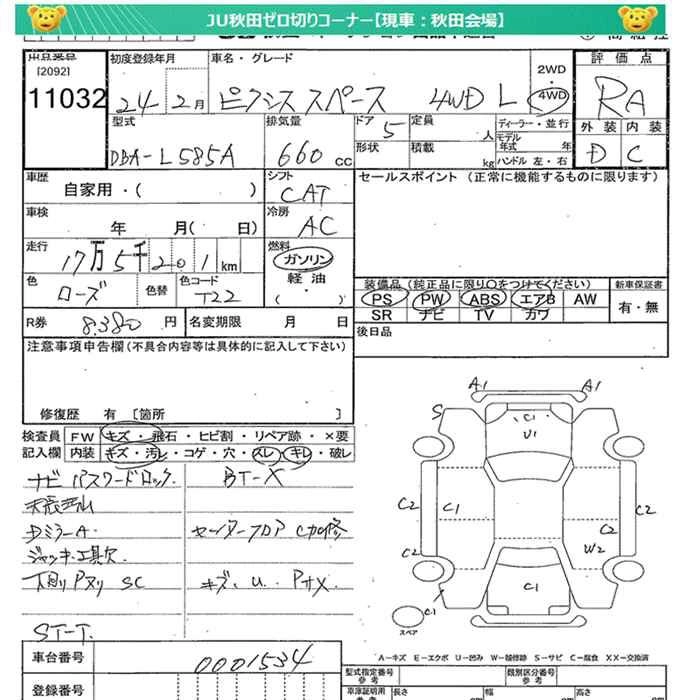 JU秋田ゼロ切りコーナー【現車：秋田会場】
[2092]
11032
初度登録年月
24年 2月
車名・グレード
ピクシス スペース 4WD L
2WD
・
4WD
評価点
RA
外装 内装
D C
型式
DBA-L585A
排気量
660 cc
ドア 5
形状
定員 人
積載 kg
ディーラー・並行
モデル年式 年
ハンドル 左・右
車歴
自家用・( )
シフト
CAT
セールスポイント (正常に機能するものに限ります)
車検
年 月( 日)
冷房
AC
走行
17万5千201km
燃料
ガソリン
軽油
( )
色
ローズ
色替
色コード
T22
装備品(純正品に限り○をつけてください)
新車保証書
PS PW ABS エアB AW
SR ナビ TV カワ
有・無
R券 8,380円
名変期限 月 日
後日品
注意事項申告欄(不具合内容等は具体的に記入して下さい)
修復歴 有 [箇所 ]
検査員記入欄
FW キズ・飛石・ヒビ割・リペア跡・×要
内装 キズ・汚レ・コゲ・穴・スレ・キレ・破レ
ナビ パスワードロック
BT-X
DミラーA
ジャッキ・工具欠
下廻りPヌリ SC
キズ、U、
ST-T.
A1 A1
S
C1
U1
C2 C1 C2
C2
C2
W2
C1
C1
スペア
A-キズ E-エクボ U-凹み W-補修跡 S-サビ C-腐食 XX-交換済
車台番号
0001534
登録番号
型式指定番号
参考
類別区分番号
参考
車庫証明用
長さ
幅
高さ